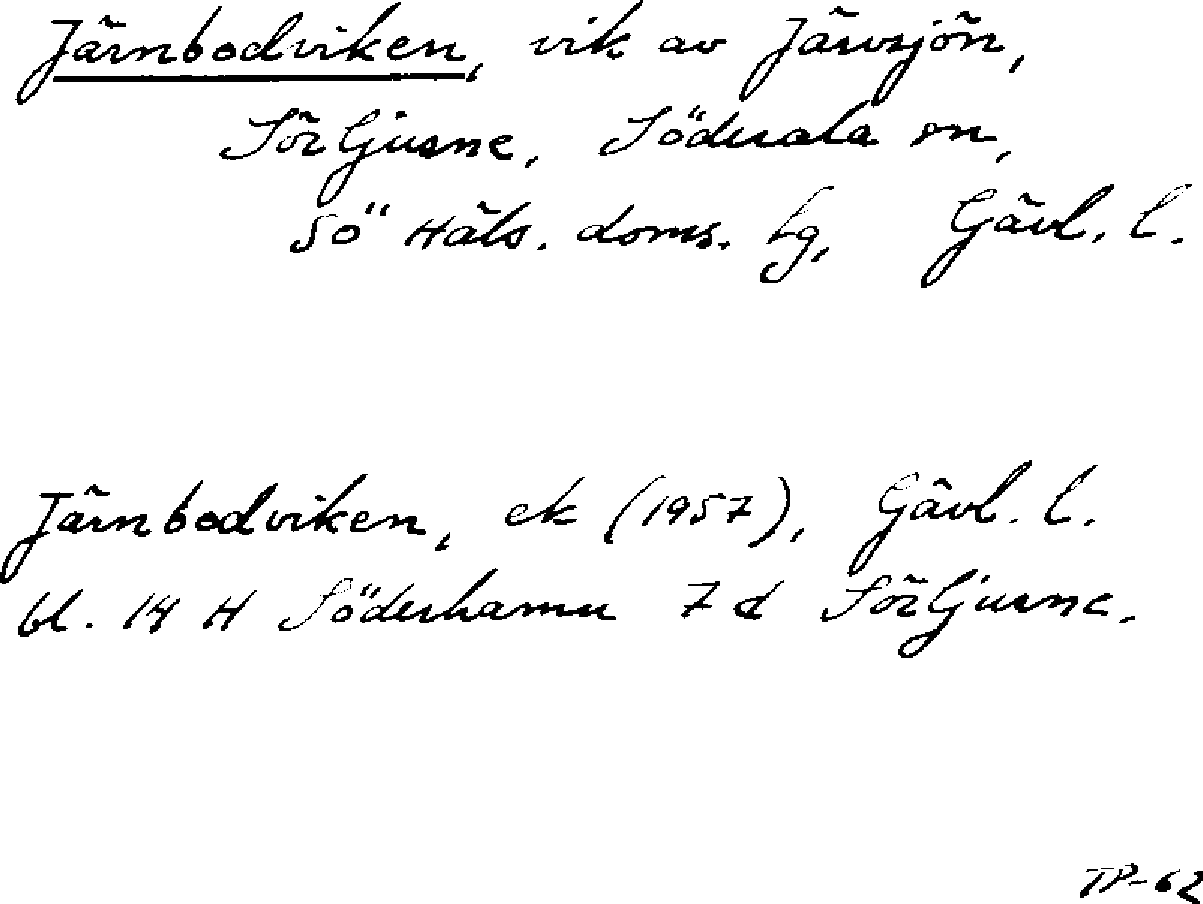 Järnbodviken, vik av Järvsjön,
Sörljusne, Söderala sn,
Sö Häls. doms. lg, Gävl. l.
Järnbodviken, ek (1957), Gävl. l.
bl. 14 H Söderhamn 7 d Sörljusne.
TP-62